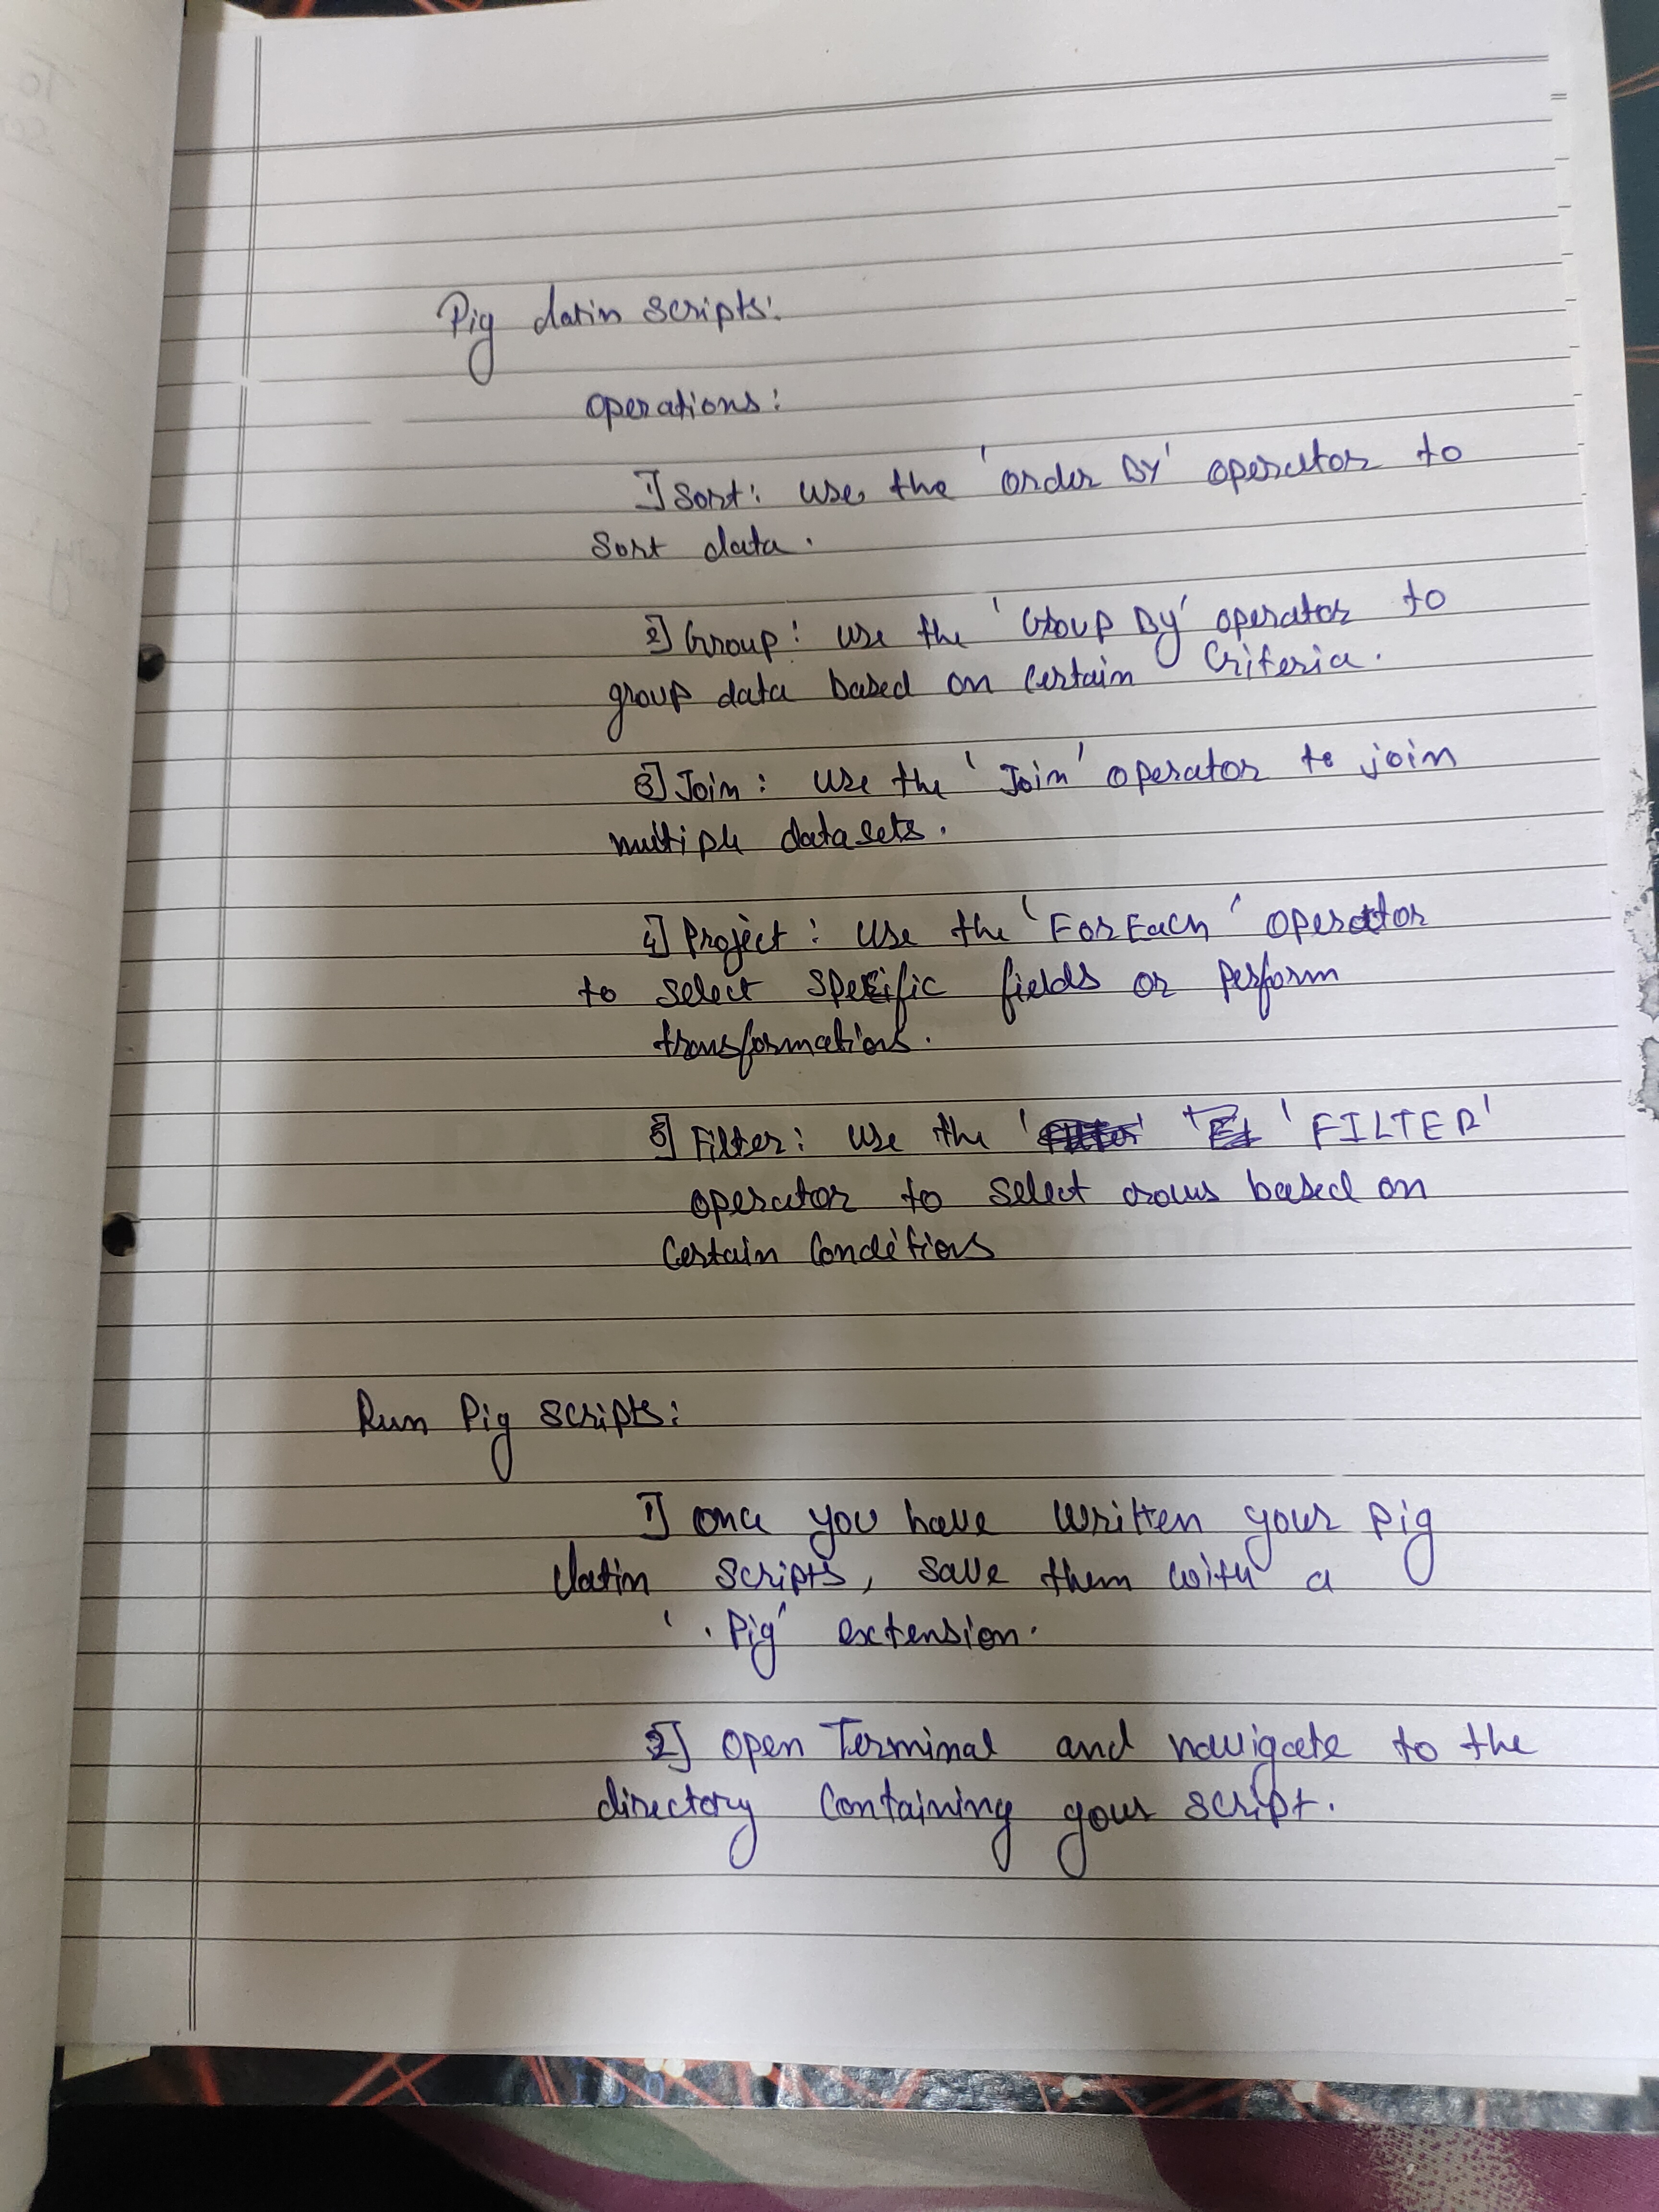 Pig Latin Scripts:
Operations:
1] Sort: Use the 'Order BY' operator to
Sort data.
2] Group: Use the 'Group By' operator to
group data based on Certain Criteria.
3] Join: Use the 'Join' operator to join
multiple datasets.
4] Project: Use the 'ForEach' operator
to select specific fields or perform
transformations.
5] Filter: Use the 'FILTER'
operator to select rows based on
Certain Conditions
Run Pig Scripts:
1] Once you have written your Pig
Latin scripts, save them with a
'.Pig' extension.
2] Open Terminal and navigate to the
directory Containing your script.